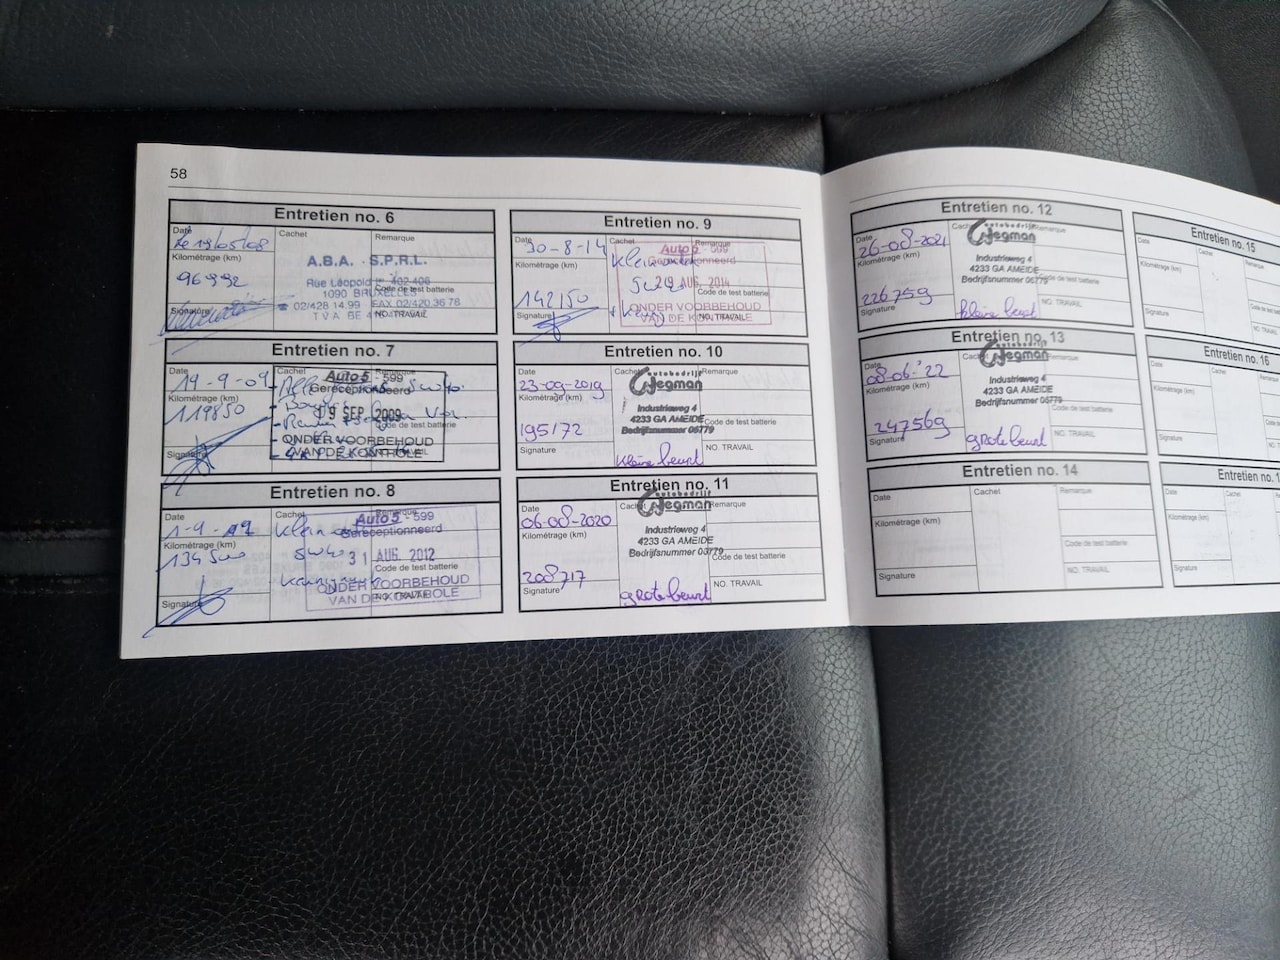 58
Entretien no. 6
Date
Cachet
Remarque
Le 19/05/08
Kilométrage (km)
96992
Signature
A.B.A. S.P.R.L.
Rue Léopold I° 402-406
Code de test batterie
1090 BRUXELLES
02/428 14.99 FAX 02/420 36 76
T V A BE
NO. TRAVAIL
Entretien no. 7
Date
Cachet
19-9-09
Kilométrage (km)
119850
Signature
Auto5 - 599
Gereceptionneerd
19 SEP. 2009
Code de test batterie
ONDER VOORBEHOUD
VAN DE KONTROLE
Entretien no. 8
Date
Cachet
Kilométrage (km)
134500
Signature
Klein
Auto5 - 599
Gereceptionneerd
31 AUG. 2012
Code de test batterie
ONDER VOORBEHOUD
NO. TRAVAIL
VAN DE KONTROLE
Entretien no. 9
Date
Cachet
Remarque
30-8-14
Kilométrage (km)
142150
Signature
Klein
Auto5 - 599
Gereceptionneerd
29 AUG. 2014
Code de test batterie
ONDER VOORBEHOUD
NO. TRAVAIL
VAN DE KONTROLE
Entretien no. 10
Date
Cachet
Remarque
23-09-2019
Kilométrage (km)
195172
Signature
autobedrijf
Wegman
Industrieweg 4
4233 GA AMEIDE
Bedrijfsnummer 06779
Code de test batterie
NO. TRAVAIL
kleine beurt
Entretien no. 11
Date
Cachet
Remarque
06-08-2020
Kilométrage (km)
208717
Signature
autobedrijf
Wegman
Industrieweg 4
4233 GA AMEIDE
Bedrijfsnummer 06779
Code de test batterie
NO. TRAVAIL
grote beurt
Entretien no. 12
Date
Cachet
Remarque
26-08-2021
Kilométrage (km)
226759
Signature
autobedrijf
Wegman
Industrieweg 4
4233 GA AMEIDE
Bedrijfsnummer 06779
Code de test batterie
NO. TRAVAIL
kleine beurt
Entretien no. 13
Date
Cachet
Remarque
08-06-'22
Kilométrage (km)
247569
Signature
autobedrijf
Wegman
Industrieweg 4
4233 GA AMEIDE
Bedrijfsnummer 06779
Code de test batterie
NO. TRAVAIL
grote beurt
Entretien no. 14
Date
Cachet
Remarque
Kilométrage (km)
Code de test batterie
Signature
NO. TRAVAIL
Entretien no. 15
Date
Cachet
Remarque
Kilométrage (km)
Signature
Entretien no. 16
Date
Cachet
Kilométrage (km)
Signature
Entretien no. 1
Date
Cachet
Kilométrage (km)
Signature